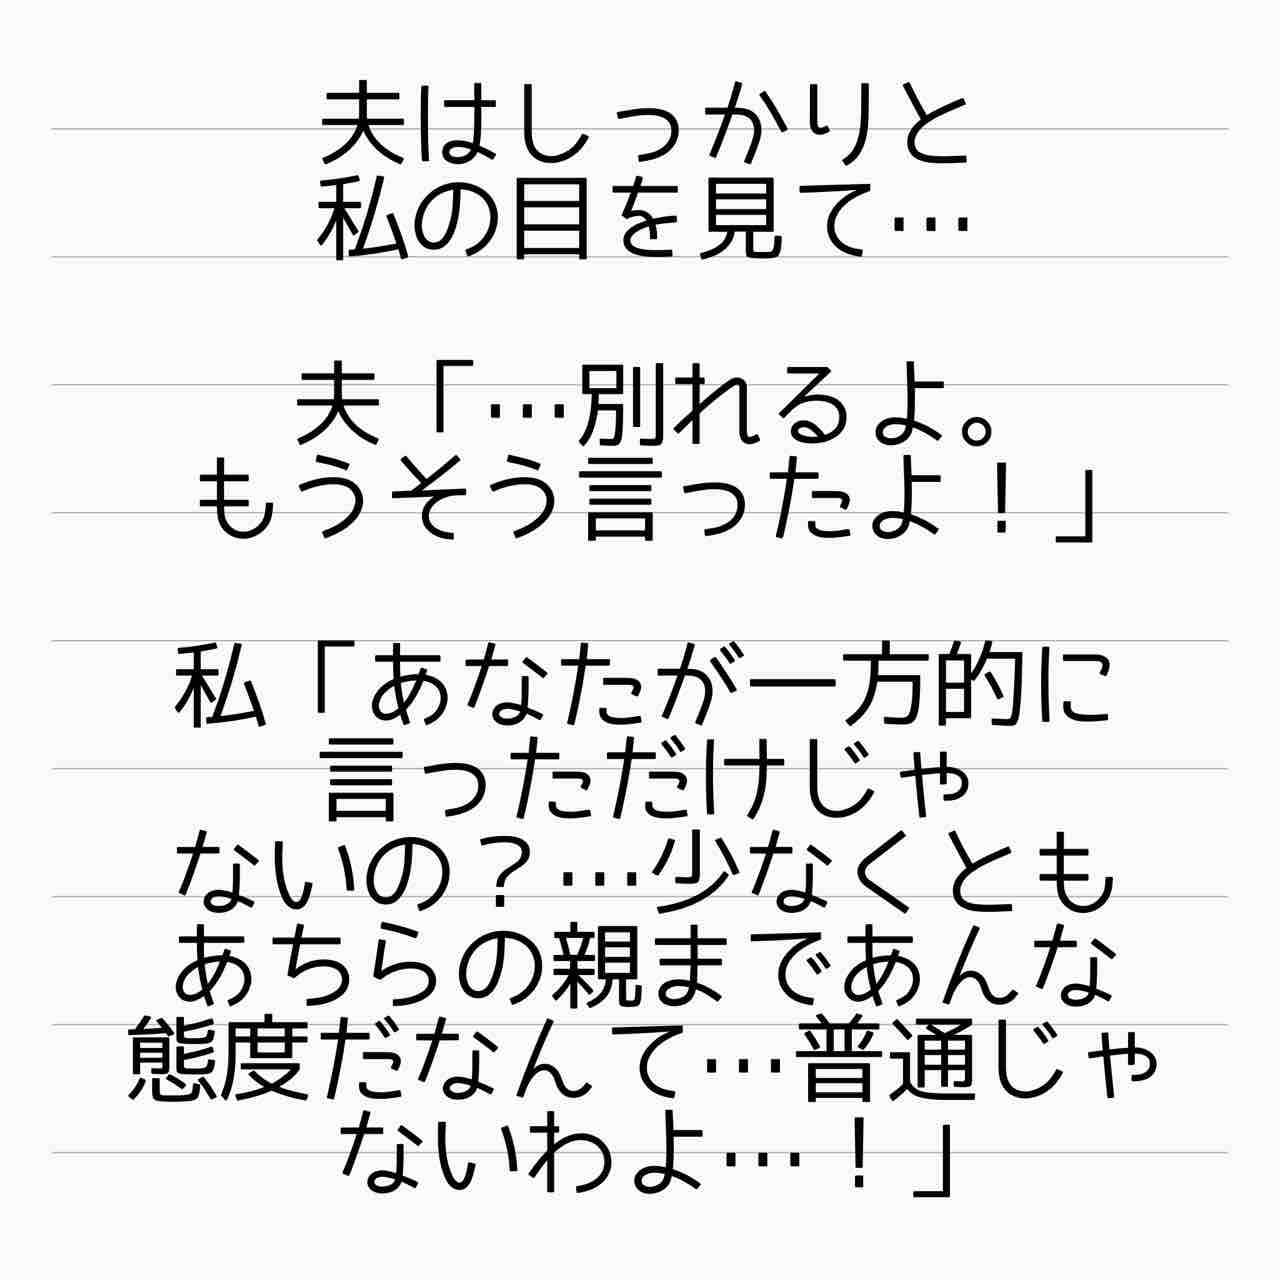 夫はしっかりと
私の目を見て…
夫「…別れるよ。
もうそう言ったよ！」
私「あなたが一方的に
言っただけじゃ
ないの？…少なくとも
あちらの親まであんな
態度だなんて…普通じゃ
ないわよ…！」